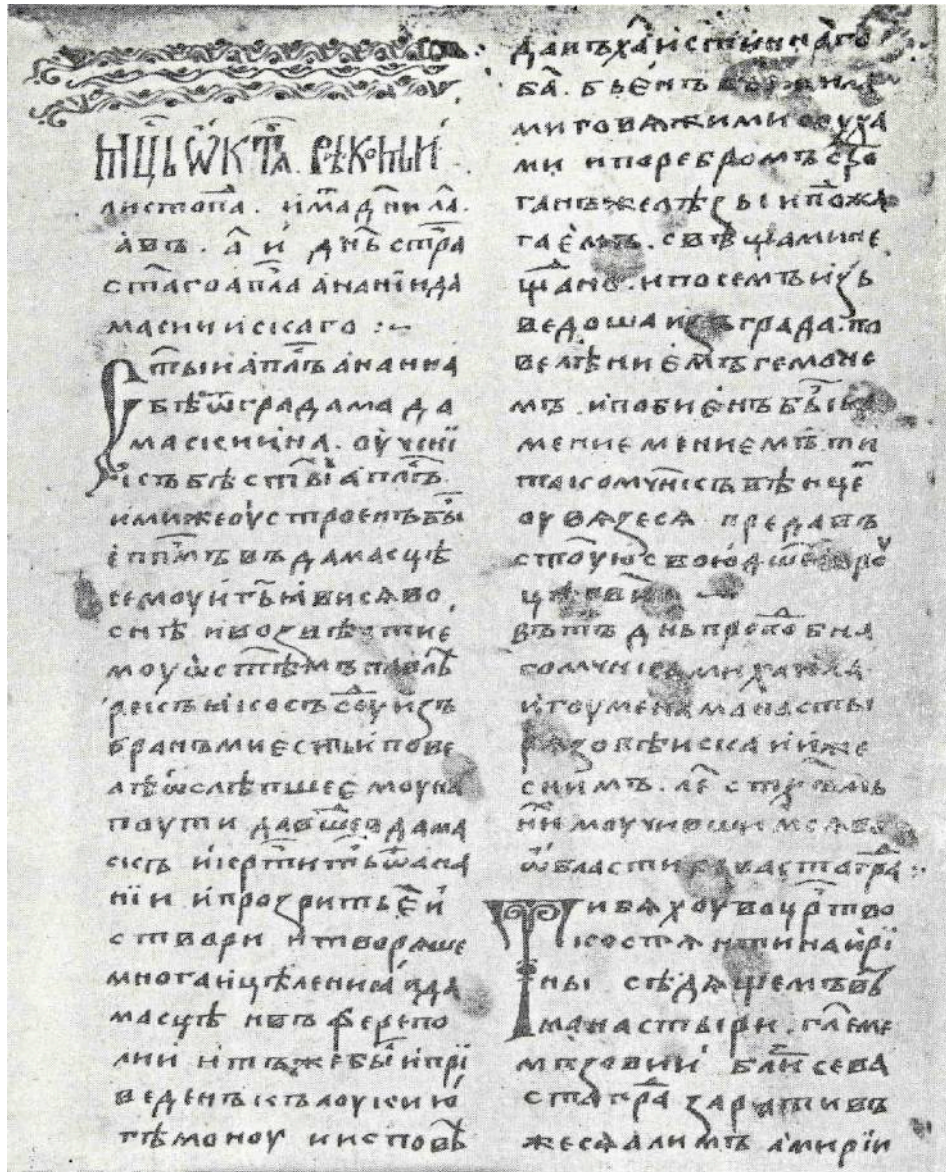 мц҃ь ѡктѧ. рекомыи
листопаⷣ. имаⷮ дн҃и л҃а.
авъ. а҃ и дн҃ь стрⷭа
ст҃аго апⷭла ананиꙗ да
маскиискаго :~
Ст҃ыи апⷭлъ ананиа
бѣ ѿ града мада
маскиина. оученї
къ бѣ ст҃ыⷯ апⷭлъ.
имиже оустроенъ бы
епⷭпмъ въ дамасцѣ
семоу и г҃ь ꙗвисѧ во
снѣ и возвѣстие
моу ѡ ст҃ѣмъ павлѣ
рекъ ꙗко съсоуⷣ изъ
бранъ ми есть и пове
лѣ ѡслѣпшее моу на
поути давшев дама
скъ и крⷭтити ть ѿ ана
нїи и прозрить еⷤ и
створи и творѧше
многа ицѣлениꙗ в да
масцѣ и въ ферепо
лии и тъ же бы и прї
веденъ къ лоукию
гѣмоноу и исповѣ
давъ х҃а истиннаго
б҃а. бьенъ
ми говѧжими соуха
ми и по ребромъ
ганъ желѣзы и пожа
гаемъ. свѣщами не
щаⷣно. и по семъ изъ
ведоша из града. по
велѣниемъ гемоне
мъ. и побиенъ быⷭ ка
мение мениемъ. ти
тако мчнкъ вѣнце
оувѧзесѧ предавъ
ст҃оую свою дш҃
ц҃
въ тъ дн҃ь препоⷣбна
го мчнка михаила
игоумена манасты
рѧ зовѣиска и иже
с нимъ. л҃ѕ
ни моучивши мсѧ въ
ѡбласти сеуастаграⷣ :·
Ти бѧхоу во црⷭтво
костѧнтина и рї
ны сѣдѧщемъ въ
манастыри. гл҃еме
мъ зовии блиⷥ сева
стаграⷣ заратив
же сѧ алимъ амирїи